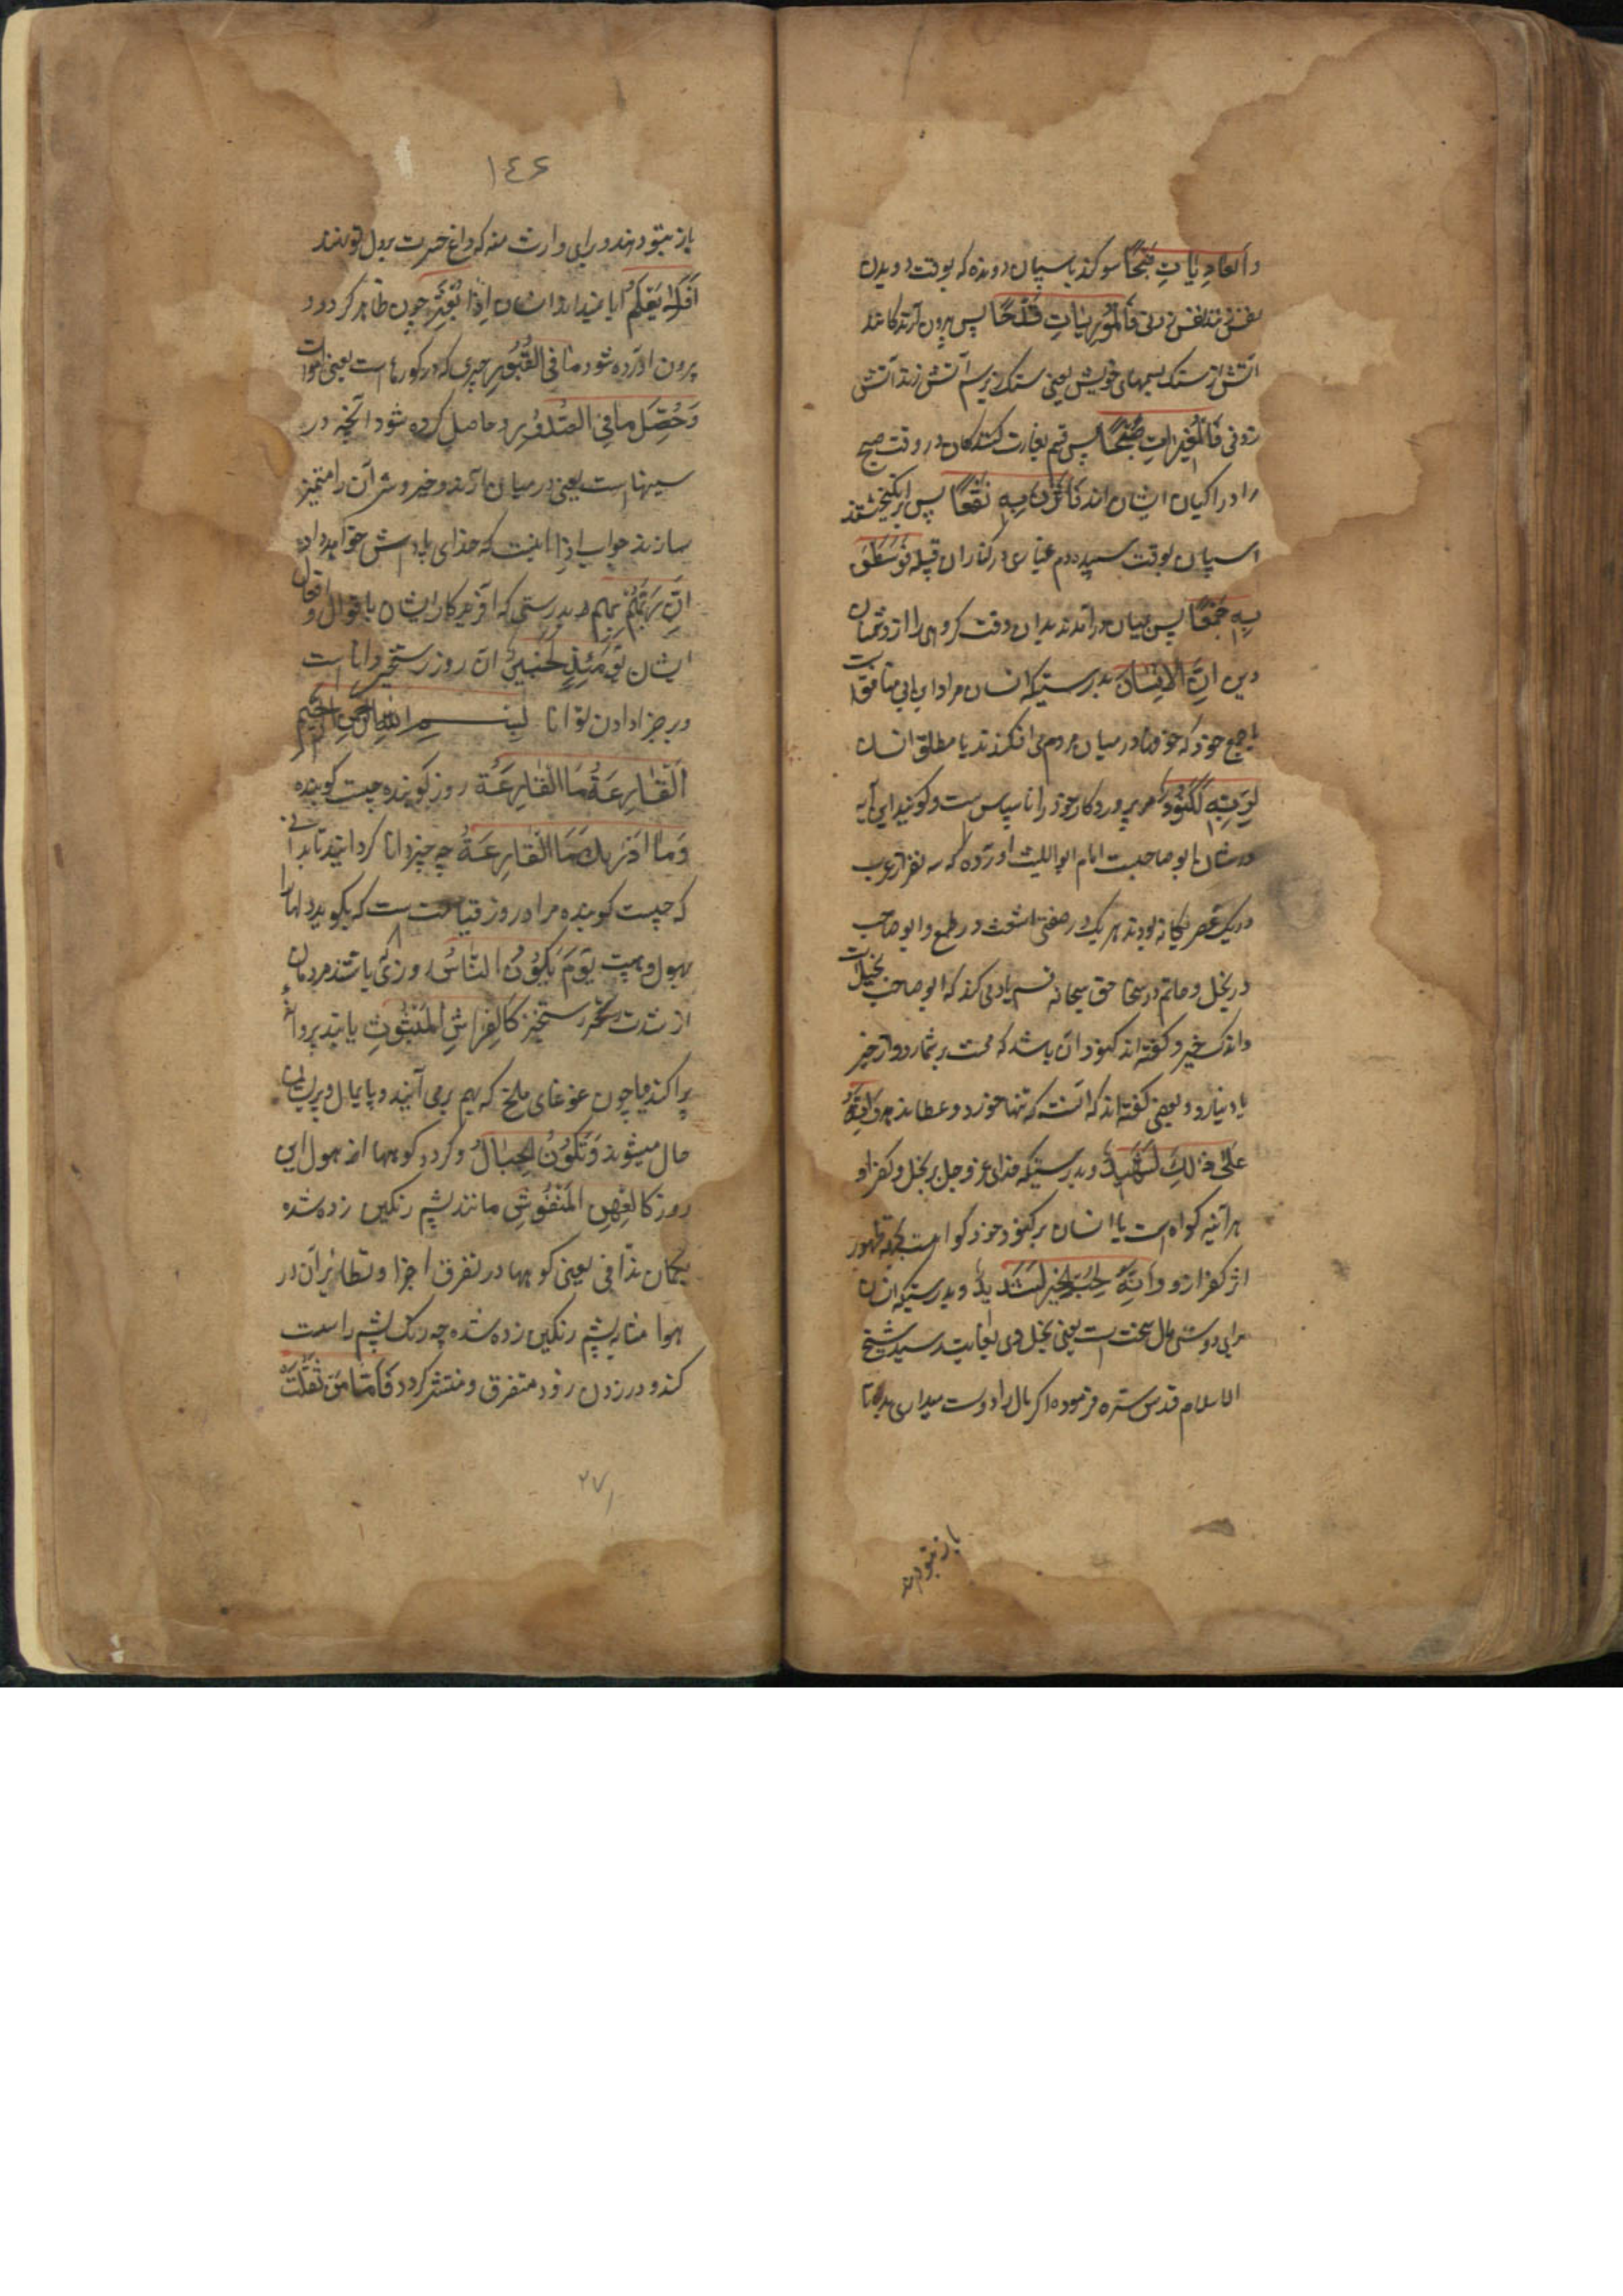 وَالعَادِيَاتِ ضَبْحًا سوكند باسپان دونده كه بوقت دويدن
نفس زنند نفس زدنى فَالْمُورِيَاتِ قَدْحًا پس بيرون آرندكانند
آتش از سنك بسمهاى خويش يعنى سنك زير سم آتش زنند آتش
زدنى فَالْمُغِيرَاتِ صُبْحًا پس قسم بغارت كنندكان در وقت صبح
را در اكبان ايشان اند فَاَثَرْنَ بِهِ نَقْعًا پس برانكيختند
اسپان بوقت سپيده دم غبارى در كنار ان قبيله فَوَسَطْنَ
بِهِ جَمْعًا پس بميان درآمدند بدان وقت كروهى را از دشمنان
دين اِنَّ الْاِنْسَانَ بدرستيكه انسان مراد ابن ابى منافق است
با جمع خود كه خوضها در ميان مردم مى افكندند يا مطلق انسان
لِرَبِّهِ لَكَنُودٌ مر پروردكار خود را ناسپاس ست و كويند اين آيه
در شان ابو صاحبست امام ابو الليث اورده كه سه نفر از عرب
در يك عصر يكانه بودند هر يك در صفتى اشعث در طمع و ابو صاحب
در بخل و حاتم در سخا حق سبحانه قسم ياد مى كند كه ابو صاحب بخيل است
و اندك خير و كفته اند كنود آن باشد كه محنت بر شمارد و از خير
ياد نيارد و بعضى كفته اند كه آنست كه تنها خورد و عطا ندهد وَاِنَّهُ
عَلٰى ذٰلِكَ لَشَهِيدٌ و بدرستيكه خداى عز و جل بر بخل و كفر او
هر آئينه كواه است يا انسان بر كنود خود كواست بجهة ظهور
اثر كفر ازو وَاِنَّهُ لِحُبِّ الْخَيْرِ لَشَدِيدٌ و بدرستيكه انسان
براى دوستى مال سخت ست يعنى بخل وى بغايت رسيد شيخ
الاسلام قدس سره فرموده اكر مال را دوست ميدارى بده تا
باز بتو دهند
١٤٦
باز بتو دهند و براى وارث منه كه داغ حسرت بر دل تو نهند
اَفَلَا يَعْلَمُ ايا نميداند انسان اِذَا بُعْثِرَ چون ظاهر كردد و
بيرون آورده شود مَا فِى الْقُبُورِ چيزى كه در كورهاست يعنى اموات
وَحُصِّلَ مَا فِى الصُّدُورِ و حاصل كرده شود آنچه در
سينهاست يعنى در ميان آرند و خير و شر آن را متميز
سازند جواب اذا اينست كه خداى پاداش خواهد داد
اِنَّ رَبَّهُمْ بِهِمْ بدرستى كه آفريدكار ايشان باقوال و افعال
ايشان يَوْمَئِذٍ لَخَبِيرٌ آن روز رستخيز داناست
و بر جزا دادن توانا بسم الله الرحمن الرحيم
اَلْقَارِعَةُ مَا الْقَارِعَةُ روز كوبنده چيست كوبنده
وَمَا اَدْرٰىكَ مَا الْقَارِعَةُ چه چيز دانا كردانيد ترا تا بدانى
كه چيست كوبنده مراد روز قيامت ست كه بكوبد دلها را
بهول و هيبت يَوْمَ يَكُونُ النَّاسُ روزى باشند مردمان
از شدت رستخيز كَالْفِرَاشِ الْمَبْثُوثِ مانند پروانهٔ
پراكنده يا چون غوغاى ملخ كه بهم برمى آيند و پايمال و پريشان
حال ميشوند وَتَكُونُ الْجِبَالُ و كردد كوهها از هول اين
روز كَالْعِهْنِ الْمَنْفُوشِ مانند پشم رنكين زده شده
بكمان ندافى يعنى كوهها در تفرق اجزا و تطاير آن در
هوا مشابه پشم رنكين زده شده چه رنك پشم را سست
كند و در زدن زود متفرق و منتشر كردد فَاَمَّا مَنْ ثَقُلَتْ
٢٧١